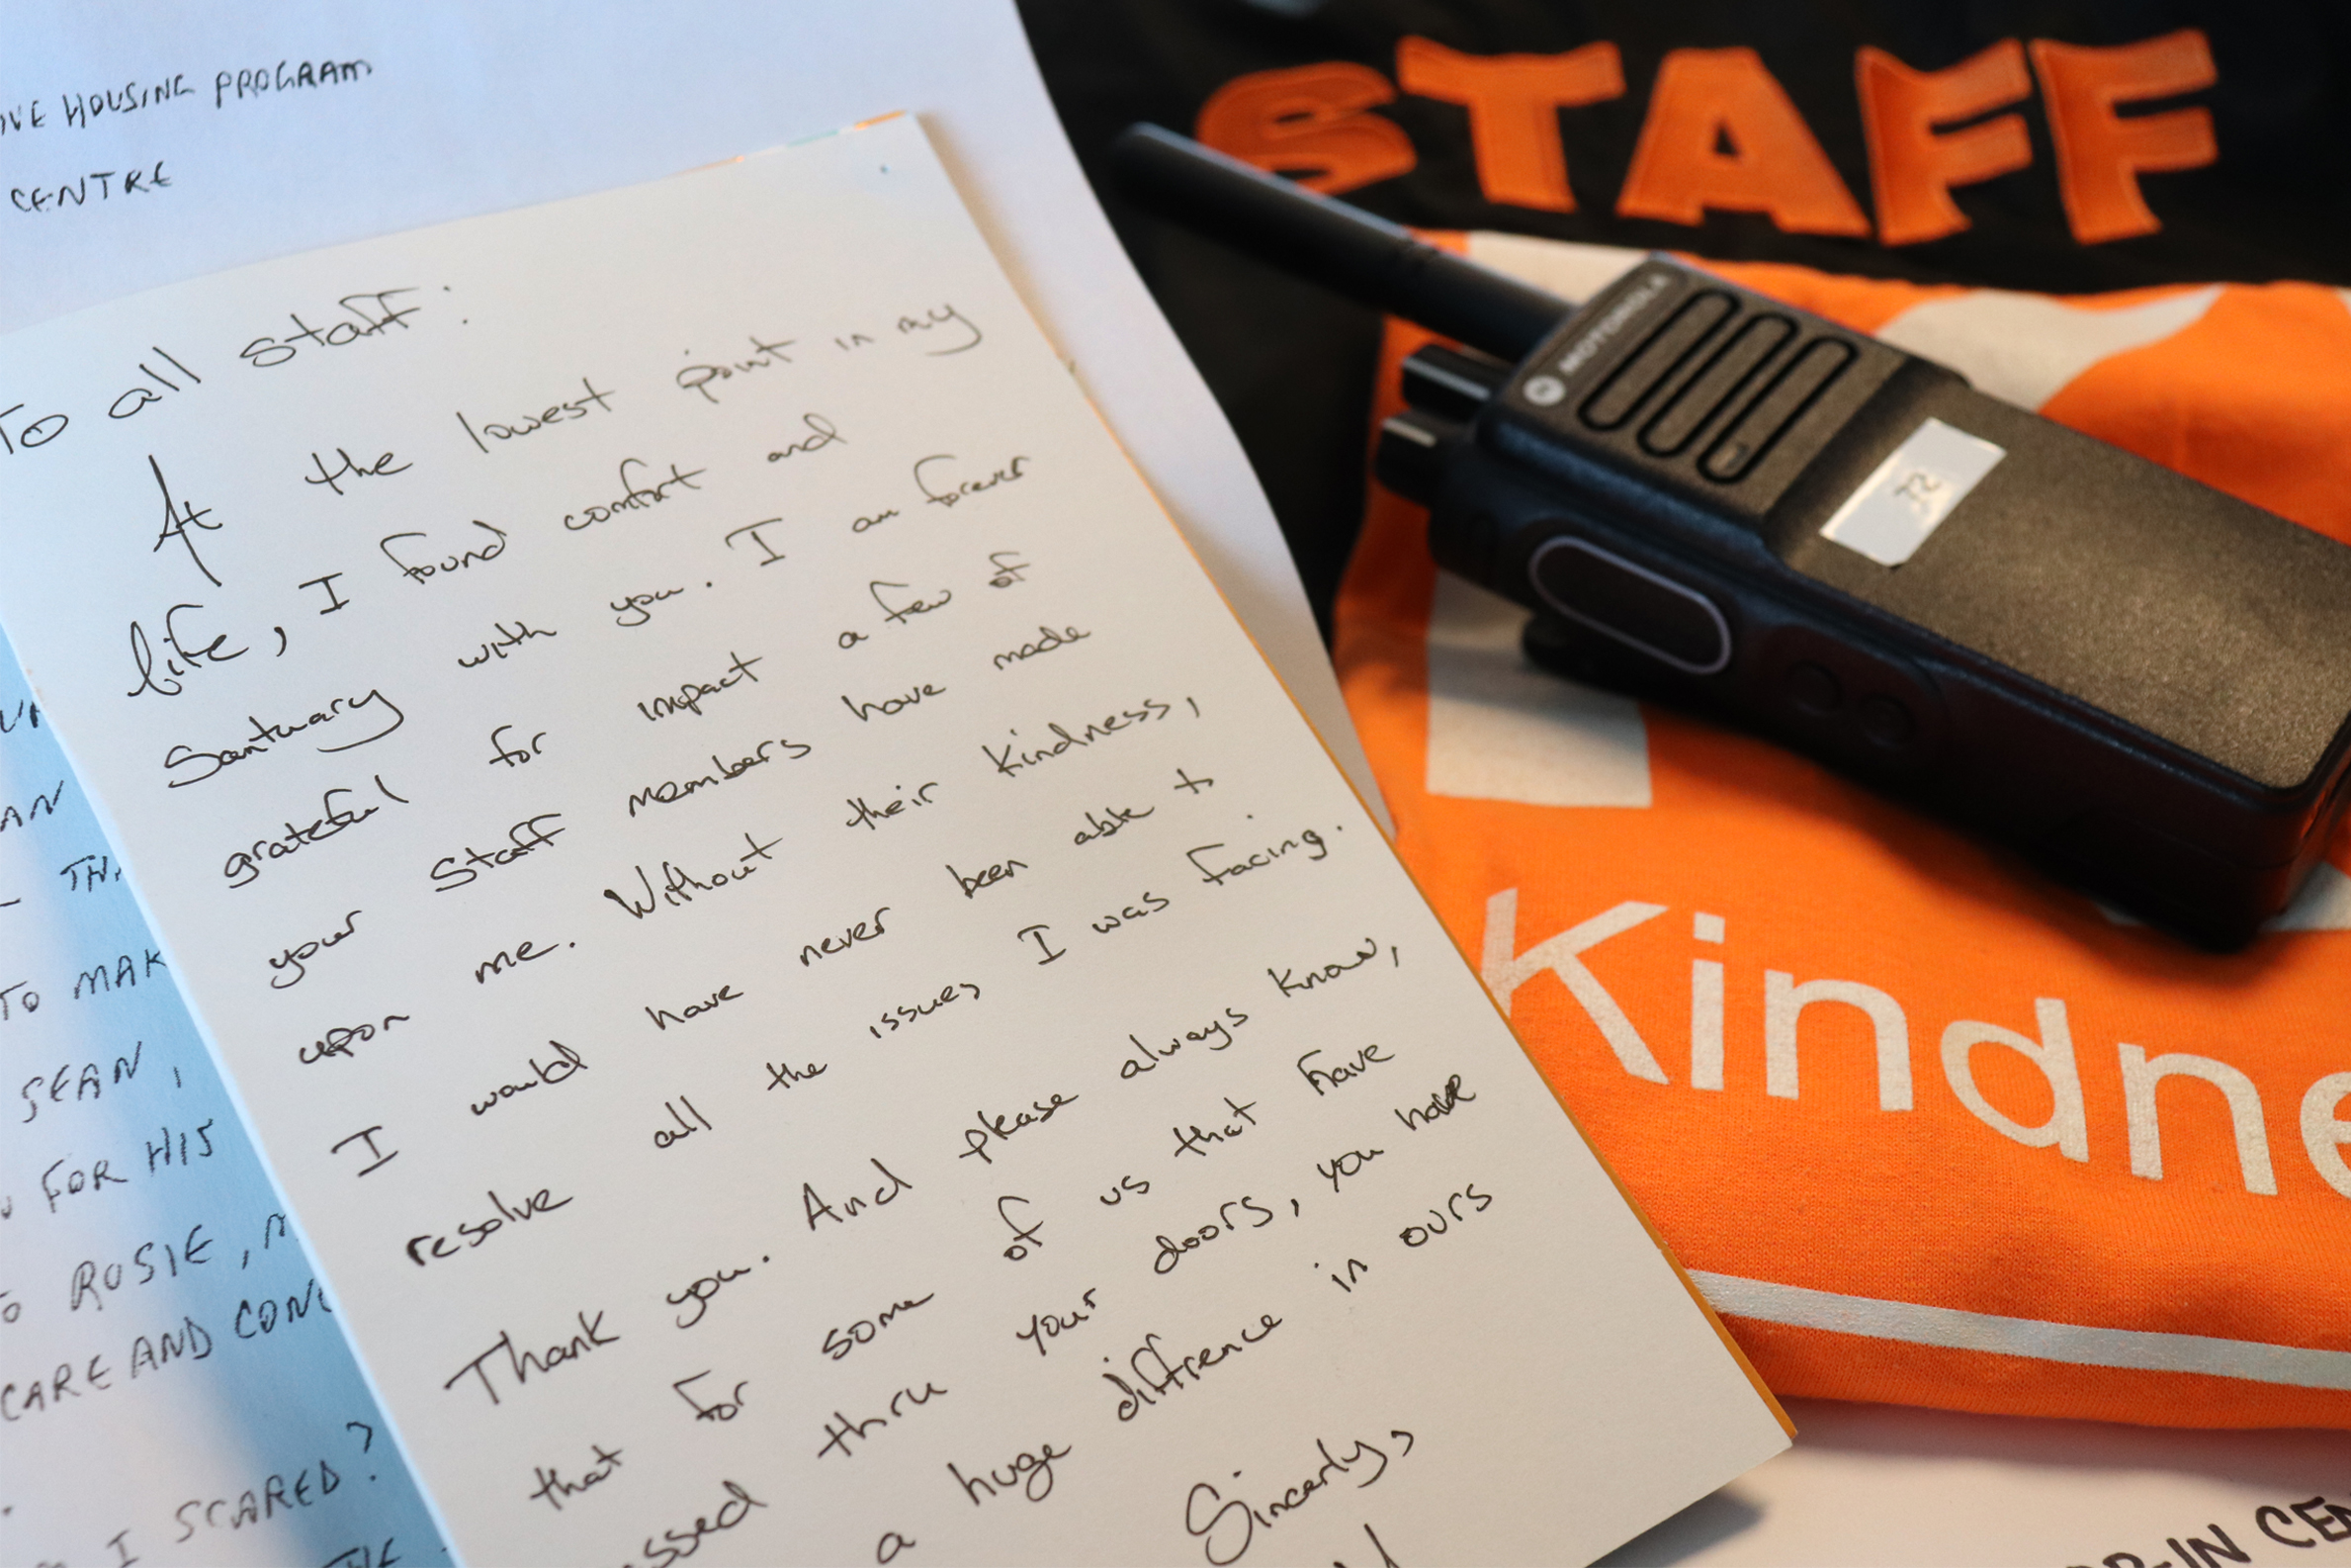 IVE HOUSING PROGRAM
CENTRE
AN
TO MAK
SEAN,
FOR HIS
ROSIE,
CARE AND CONC
I SCARED?
THE
To all staff:
At the lowest point in my
life, I found comfort and
Santuary with you. I am forever
grateful for impact a few of
your staff members have made
upon me. Without their kindness,
I would have never been able to
resolve all the issues I was facing.
Thank you. And please always know,
that for some of us that have
ssed thru your doors, you have
a huge diffrence in ours
Sincerly,
STAFF
MOTOROLA
Kindne
-IN CEN